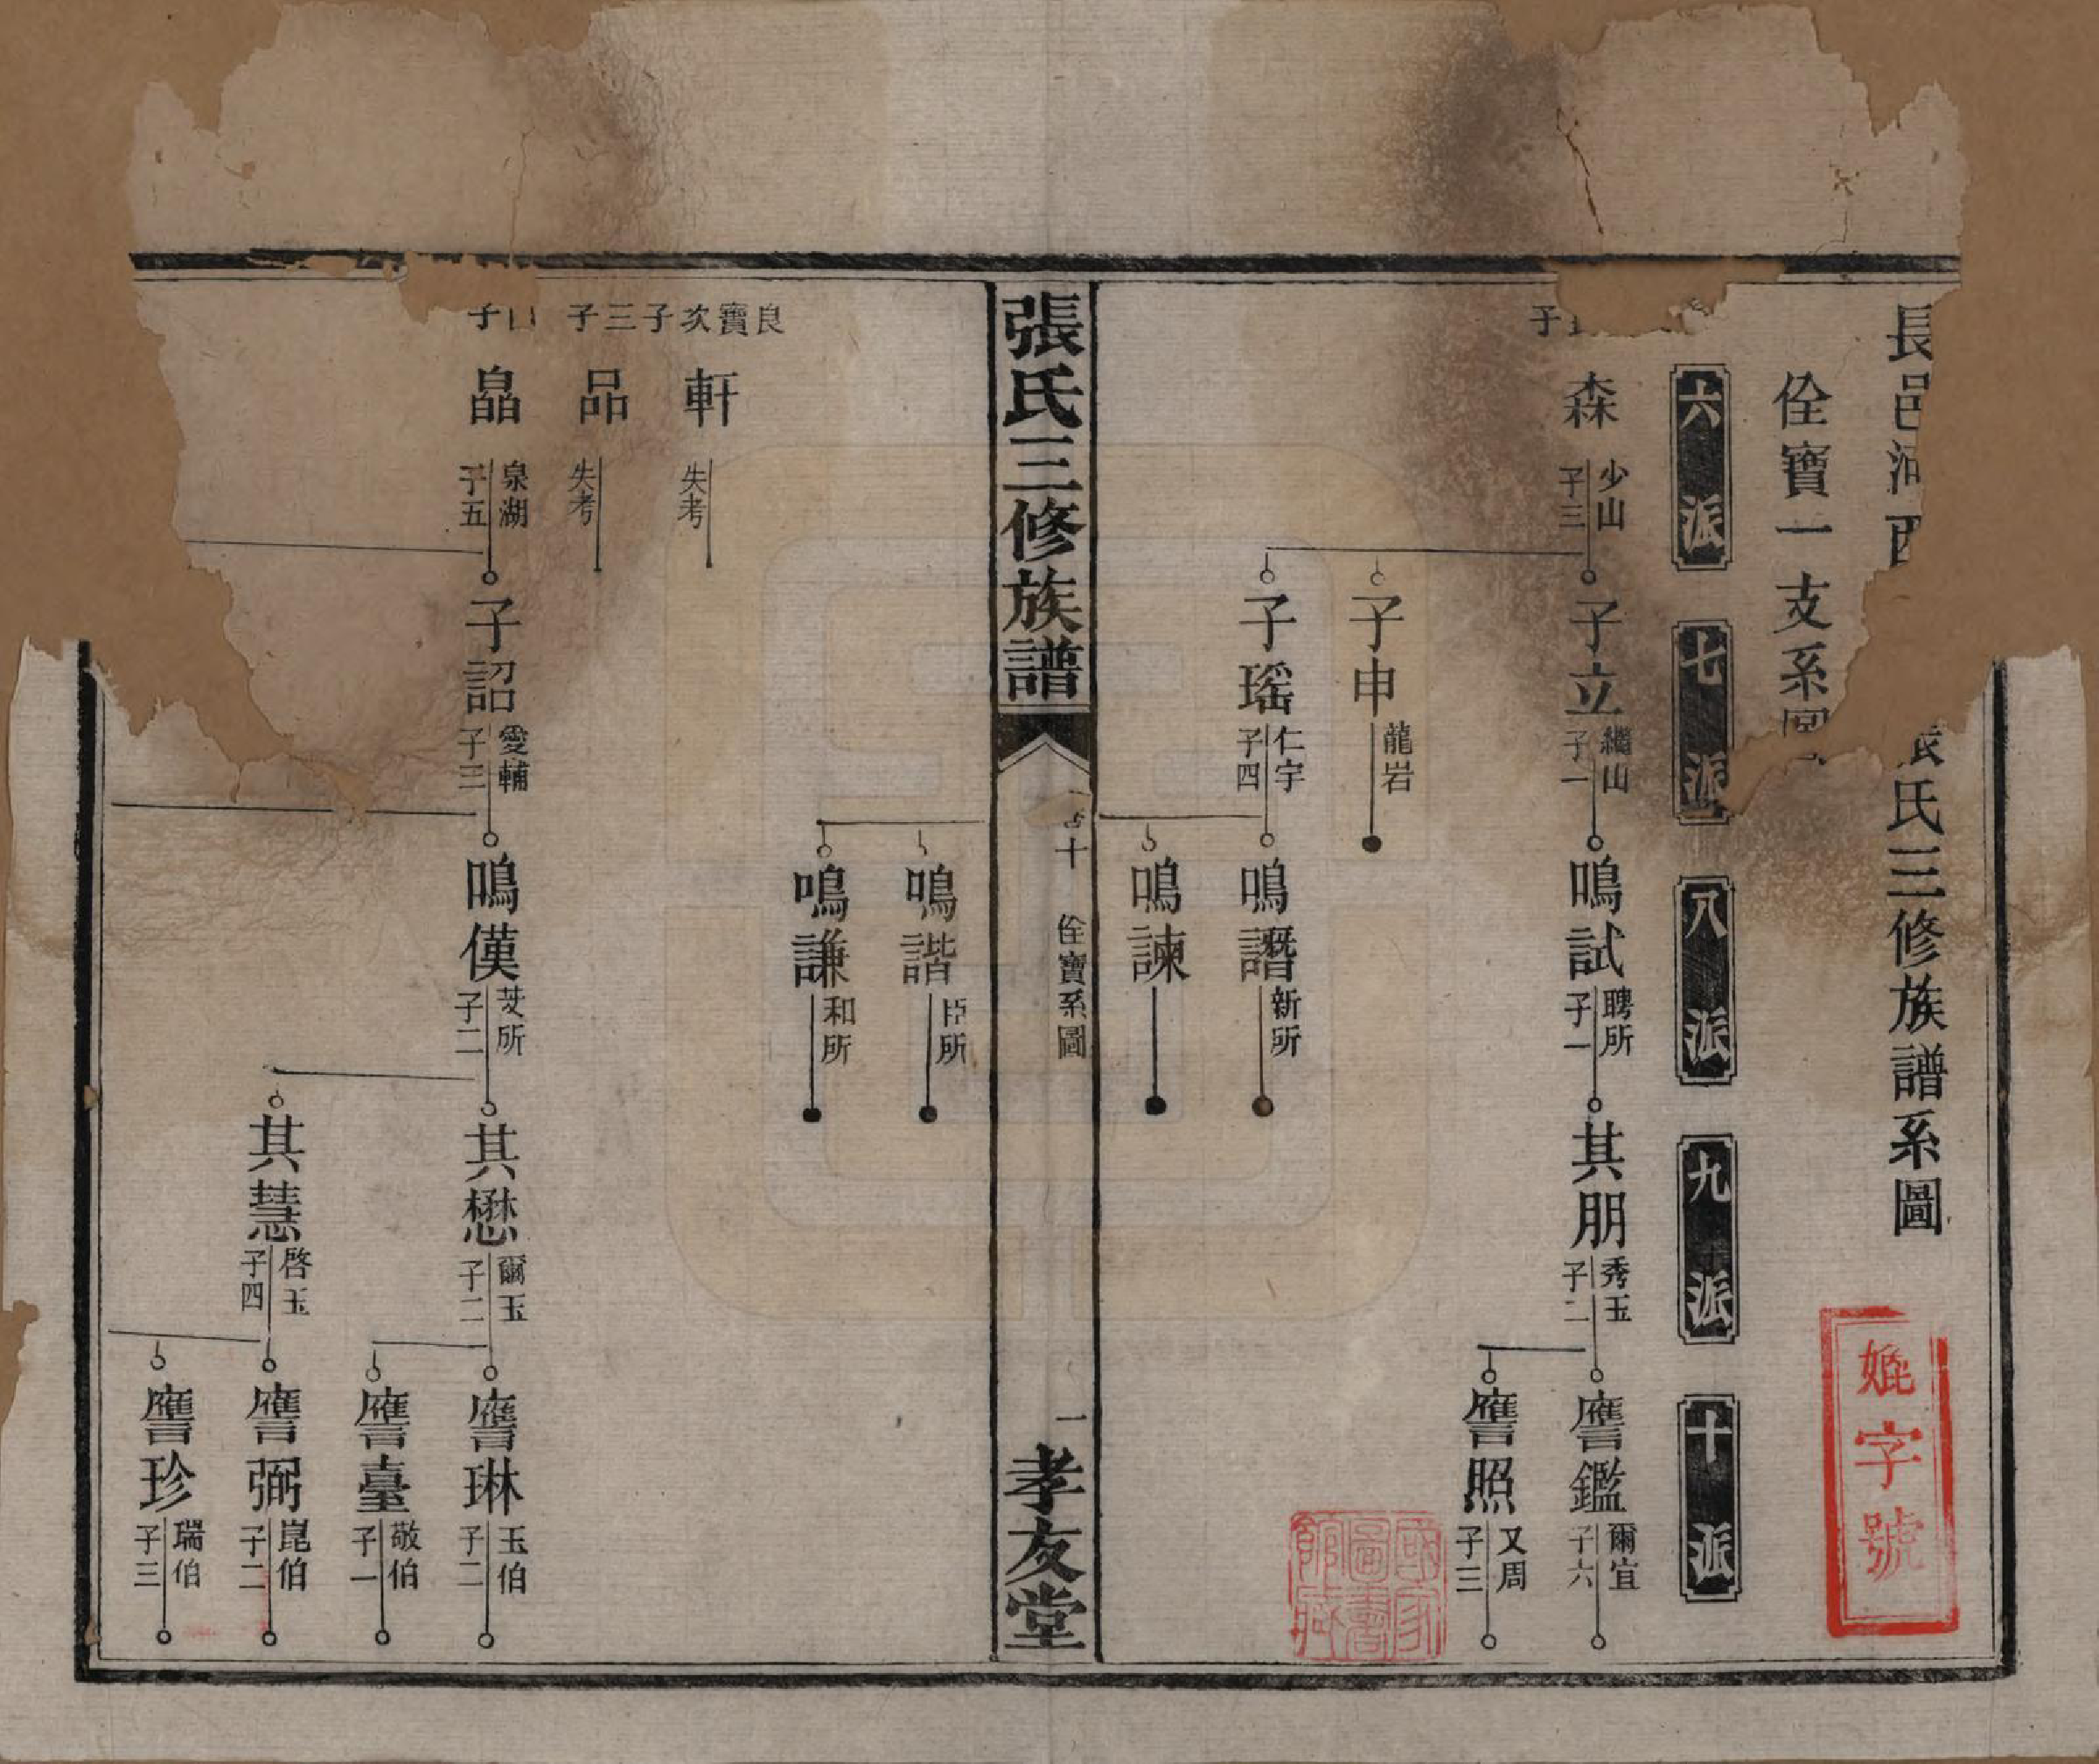 長邑河西
張氏三修族譜系圖
佺寶一支系圖
六派
七派
八派
九派
十派
子
森
少山
子三
子立
繼山
子一
鳴試
聘所
子一
其朋
秀玉
子二
譍鑑
爾宜
子六
譍照
又周
子三
子申
龍岩
子瑤
仁宇
子四
鳴譖
新所
鳴諫
張氏三修族譜
十
佺寶系圖
一
孝友堂
鳴諧
臣所
鳴謙
和所
良寶次子
軒
失考
三子
品
失考
子
皛
泉湖
子五
子詔
愛輔
子三
鳴僕
芟所
子二
其懋
爾玉
子二
譍琳
玉伯
子二
譍臺
敬伯
子一
其慧
啓玉
子四
譍弼
崑伯
子二
譍珍
瑞伯
子三
字號
國家圖書館藏